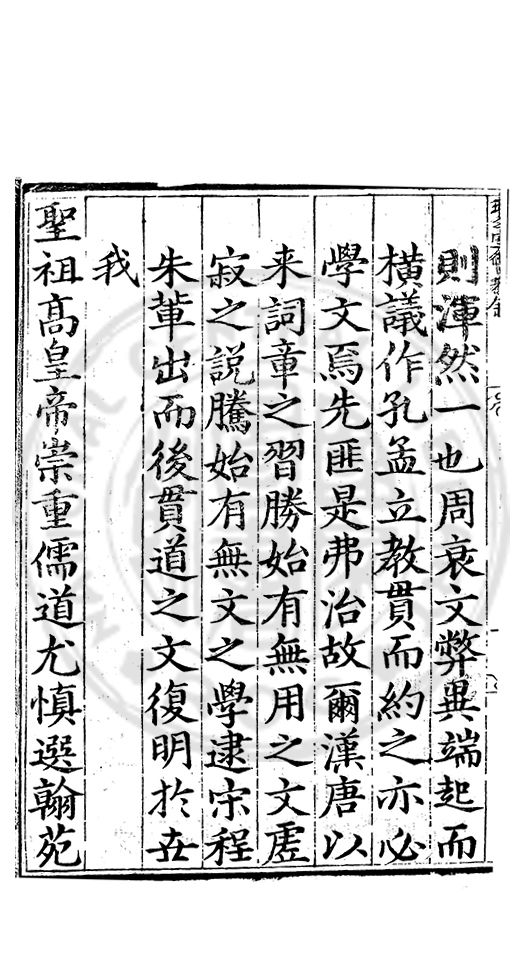 則渾然一也周衰文弊異端起而
橫議作孔孟立教貫而約之亦必
學文焉先匪是弗治故爾漢唐以
来詞章之習勝始有無用之文虗
寂之說騰始有無文之學逮宋程
朱軰出而後貫道之文復明於世
我
聖祖髙皇帝崇重儒道尤慎選翰苑